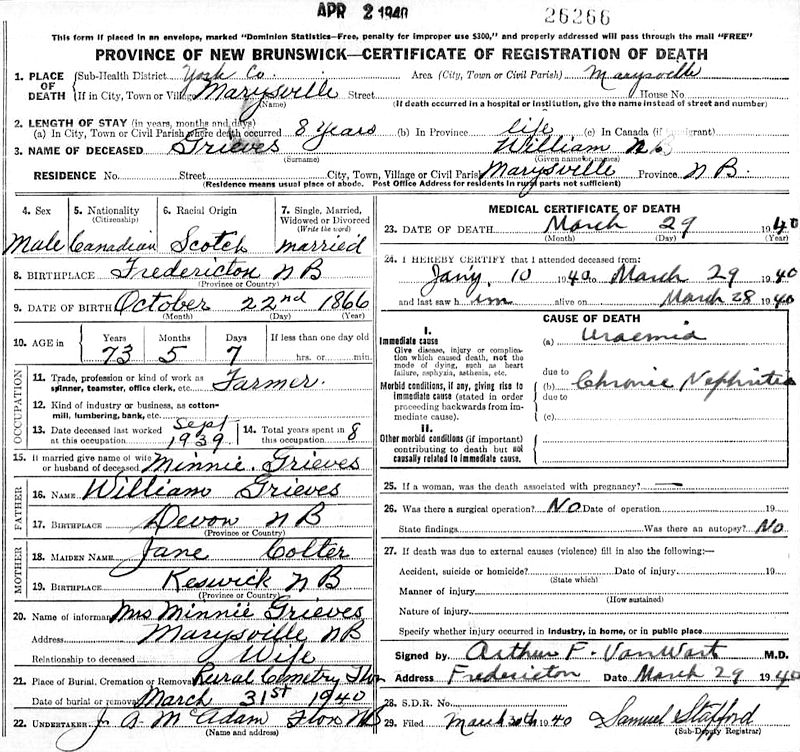 APR 2 1940
26266
This form if placed in an envelope, marked "Dominion Statistics—Free, penalty for improper use $300," and properly addressed will pass through the mail "FREE"
PROVINCE OF NEW BRUNSWICK—CERTIFICATE OF REGISTRATION OF DEATH
1. PLACE OF DEATH
Sub-Health District York Co. Area (City, Town or Civil Parish) Marysville
If in City, Town or Village Marysville Street House No
(Name) (If death occurred in a hospital or institution, give the name instead of street and number)
2. LENGTH OF STAY (in years, months and days)
(a) In City, Town or Civil Parish where death occurred 8 years (b) In Province life (c) In Canada (if immigrant)
3. NAME OF DECEASED Grieves William
(Surname) (Given name or names)
RESIDENCE No. Street City, Town, Village or Civil Parish Marysville Province N B.
(Residence means usual place of abode. Post Office Address for residents in rural parts not sufficient)
4. Sex
Male
5. Nationality
(Citizenship)
Canadian
6. Racial Origin
Scotch
7. Single, Married, Widowed or Divorced
(Write the word)
married
8. BIRTHPLACE Fredericton N B
(Province or Country)
9. DATE OF BIRTH October 22nd 1866
(Month) (Day) (Year)
10. AGE in
Years Months Days If less than one day old
73 5 7 hrs. or min.
OCCUPATION
11. Trade, profession or kind of work as spinner, teamster, office clerk, etc. Farmer.
12. Kind of industry or business, as cotton-mill, lumbering, bank, etc.
13. Date deceased last worked at this occupation Sept 1939
14. Total years spent in this occupation 8
15. If married give name of wife or husband of deceased Minnie. Grieves
FATHER
16. NAME William Grieves
17. BIRTHPLACE Devon N B
(Province or Country)
MOTHER
18. MAIDEN NAME Jane Colter
19. BIRTHPLACE Keswick N B
(Province or Country)
20. Name of informant Mrs Minnie Grieves
Address Marysville N B
Relationship to deceased Wife
21. Place of Burial, Cremation or Removal Rural Cemetry Fton
Date of burial or removal March 31st 1940
22. UNDERTAKER J. A. McAdam Fton NB
(Name and address)
MEDICAL CERTIFICATE OF DEATH
23. DATE OF DEATH March 29 1940
(Month) (Day) (Year)
24. I HEREBY CERTIFY that I attended deceased from:
Jan'y. 10 1940 to March 29 1940
and last saw him alive on March 28 1940
CAUSE OF DEATH
I.
Immediate cause
Give disease, injury or complication which caused death, not the mode of dying, such as heart failure, asphyxia, asthenia, etc.
(a) Uraemia
due to
Morbid conditions, if any, giving rise to immediate cause (stated in order proceeding backwards from immediate cause).
(b) Chronic Nephritis
due to
(c)
II.
Other morbid conditions (if important) contributing to death but not causally related to immediate cause.
25. If a woman, was the death associated with pregnancy? —
26. Was there a surgical operation? No Date of operation 19
State findings Was there an autopsy? No
27. If death was due to external causes (violence) fill in also the following:—
Accident, suicide or homicide? Date of injury 19
(State which)
Manner of injury
(How sustained)
Nature of injury
Specify whether injury occurred in industry, in home, or in public place
Signed by Arthur F. VanWart M.D.
Address Fredericton Date March 29 1940
28. S.D.R. No.
29. Filed March 30th 1940 Samuel Stafford
(Sub-Deputy Registrar)